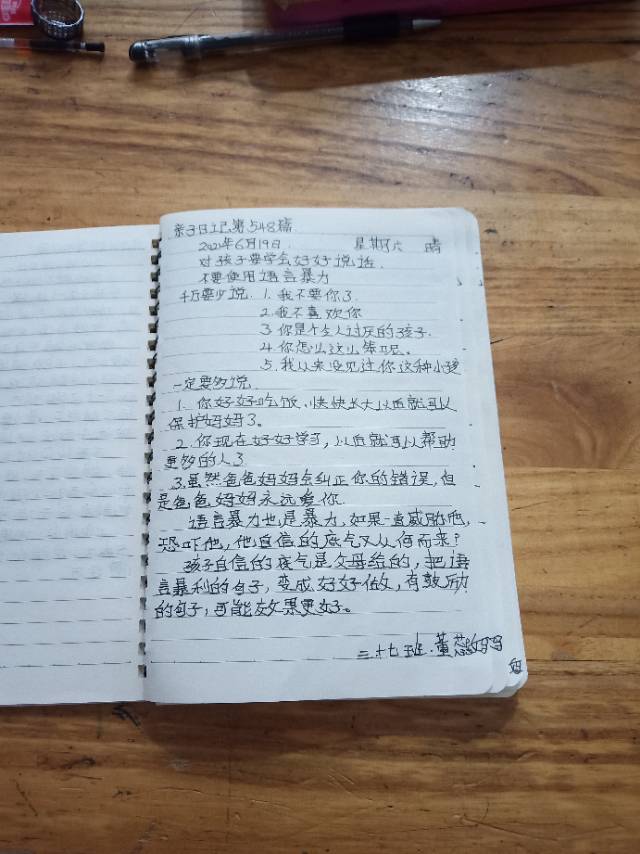 亲子日记第548篇
2021年6月19日 星期六 晴
对孩子要学会好好说话
不要使用语言暴力
千万要少说 1. 我不要你了
2. 我不喜欢你
3. 你是个令人讨厌的孩子.
4. 你怎么这么笨呢。
5. 我从来没见过你这种小孩
一定要多说.
1. 你好好吃饭,快快长大以后就可以
保护妈妈了。
2. 你现在好好学习,以后就可以帮助
更多的人了
3. 虽然爸爸妈妈会纠正你的错误,但
是爸爸妈妈永远爱你.
语言暴力也是暴力,如果一直威胁他,
恐吓他,他自信的底气又从何而来?
孩子自信的底气是父母给的,把语
言暴利的句子,变成好好做,有鼓励
的句子,可能效果更好。
二十七班.董蕊妈妈